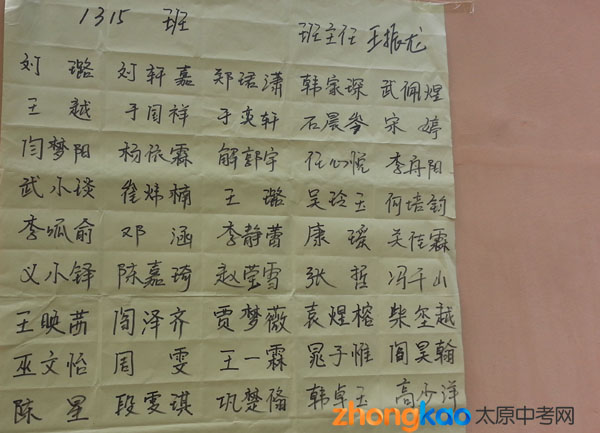 1315 班 班主任 王振龙
刘璐 刘轩嘉 郑珺潇 韩家琛 武佩煌
王越 于国祥 于奕轩 石晨岑 宋婷
闫梦阳 杨依霖 解郭宇 任心悦 李舟阳
武小琰 崔炜楠 王璐 吴玲玉 何培钧
李佩俞 邓涵 李静蕾 康瑷 关佳霖
义小铎 陈嘉琦 赵莹雪 张哲 冯千山
王映茜 阎泽齐 贾梦薇 袁煜榕 柴垄越
巫文怡 周雯 王一霖 晁子惟 阎昊翰
陈星 段雯琪 巩楚 韩卓玉 高少洋
zhongkao 太原中考网